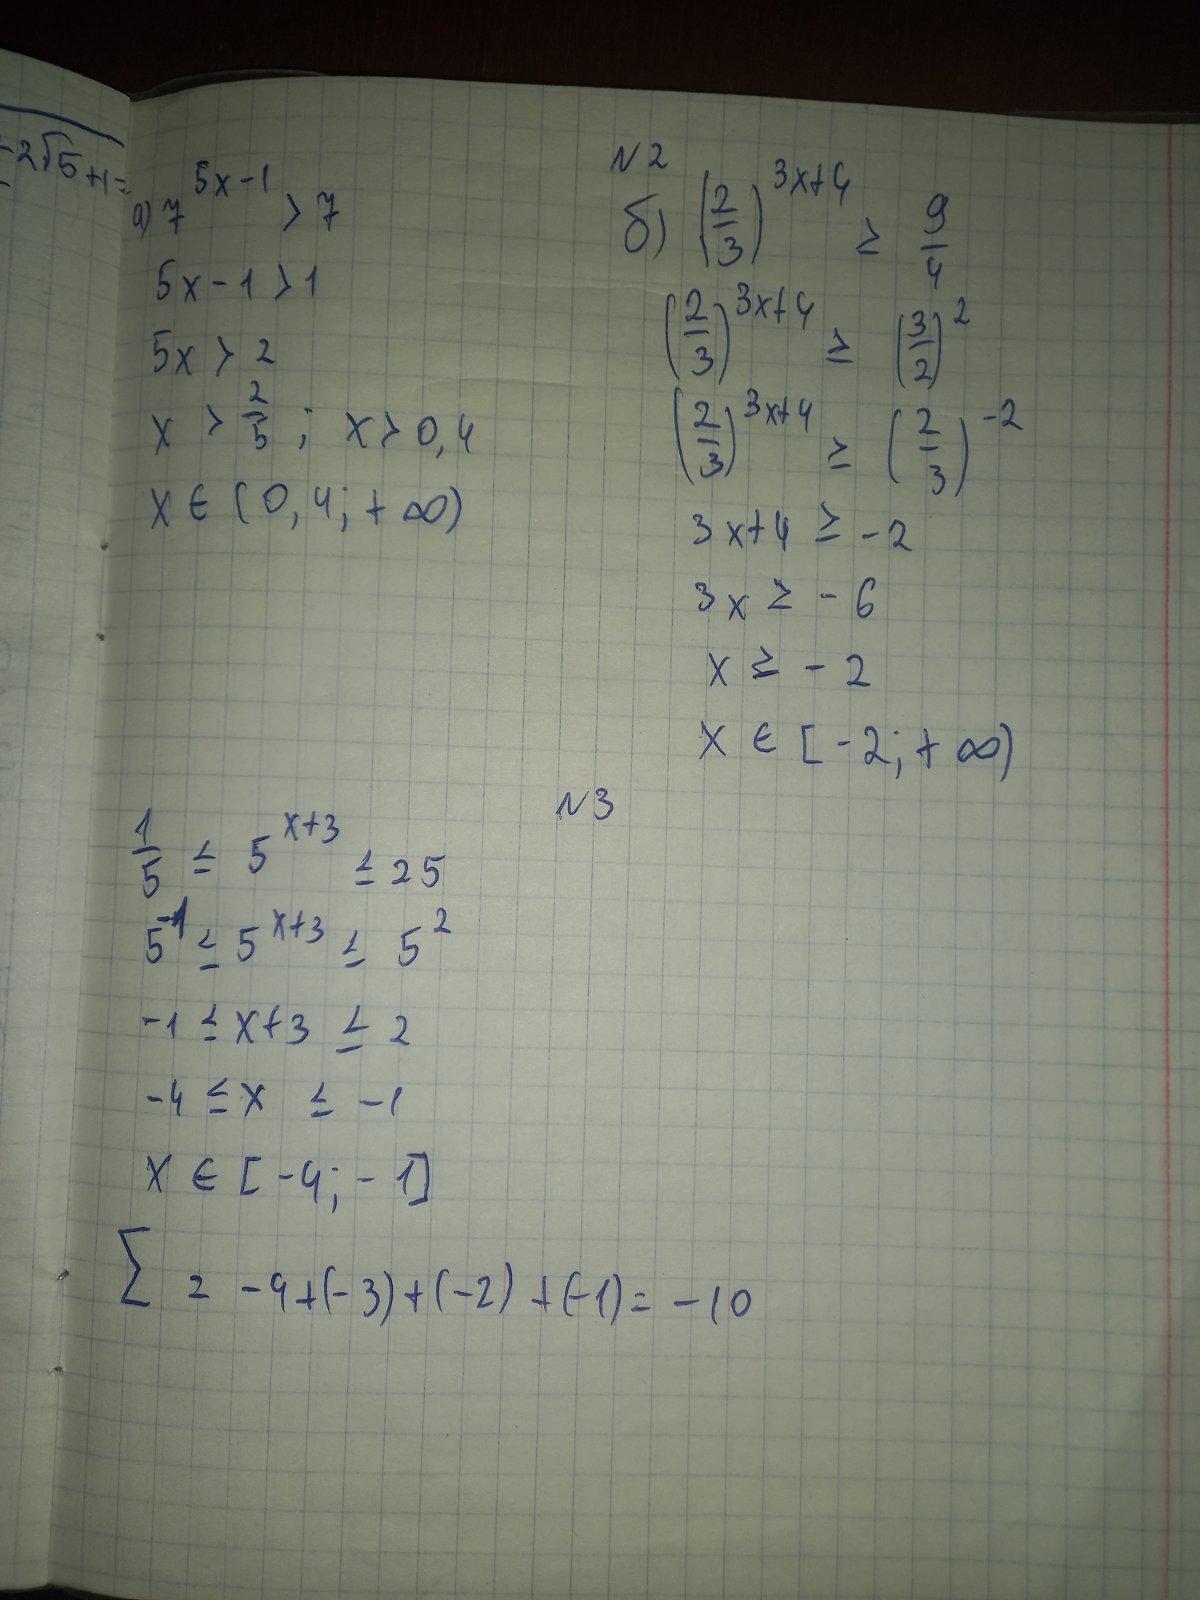 -2√5+1=
N2
a) 7^(5x-1) > 7
5x-1>1
5x > 2
x > 2/5 ; x > 0,4
x ∈ (0,4; + ∞)
б) (2/3)^(3x+4) ≥ 9/4
(2/3)^(3x+4) ≥ (3/2)^2
(2/3)^(3x+4) ≥ (2/3)^(-2)
3x+4 ≥ -2
3x ≥ -6
x ≥ -2
x ∈ [-2; + ∞)
N3
1/5 ≤ 5^(x+3) ≤ 25
5^(-1) ≤ 5^(x+3) ≤ 5^2
-1 ≤ x+3 ≤ 2
-4 ≤ x ≤ -1
x ∈ [-4; -1]
Σ = -4+(-3)+(-2)+(-1)= -10